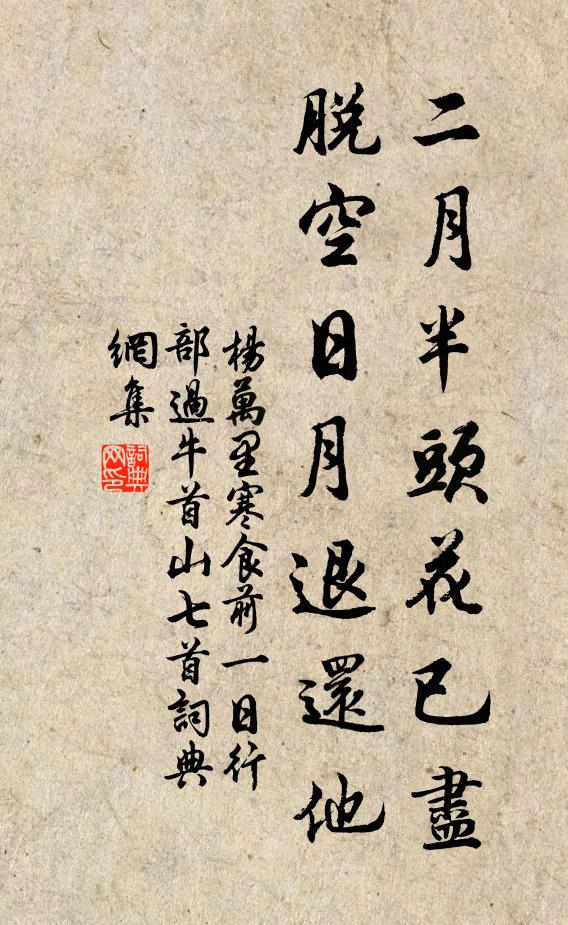 二月半頭花已盡
脫空日月退還他
楊萬里寒食前一日行
部過牛首山七首詞典
網集
詞典
网印